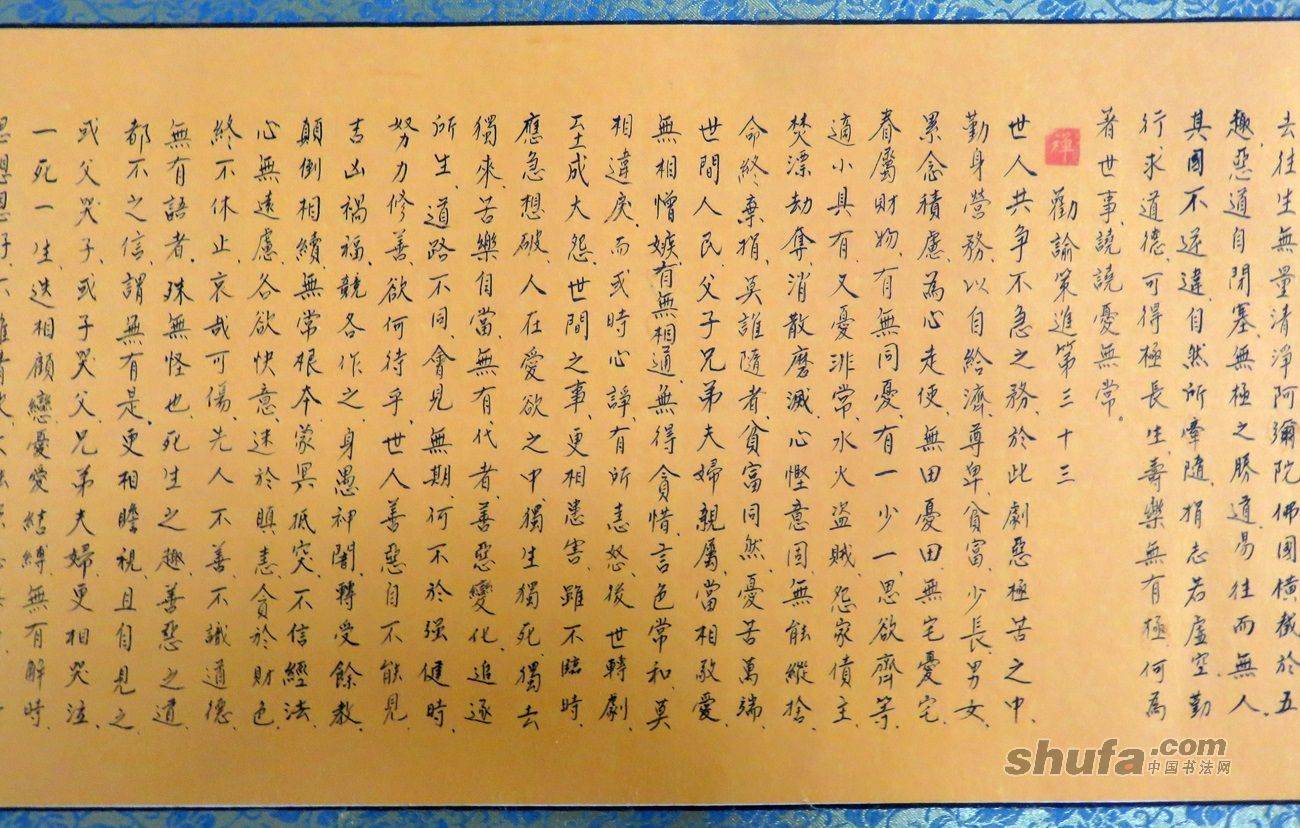 去、往生無量清淨阿彌陀佛國、橫截於五
趣、惡道自閉塞、無極之勝道、易往而無人、
其國不逆違、自然所牽隨、捐志若虛空、勤
行求道德、可得極長生、壽樂無有極、何為
著世事、譊譊憂無常。
勸諭策進第三十三
世人共爭不急之務、於此劇惡極苦之中、
勤身營務、以自給濟、尊卑、貧富、少長、男女、
累念積慮、為心走使、無田憂田、無宅憂宅、
眷屬財物、有無同憂、有一少一、思欲齊等、
適小具有、又憂非常、水火盜賊、怨家債主、
焚漂劫奪、消散磨滅、心慳意固、無能縱捨、
命終棄捐、莫誰隨者、貧富同然、憂苦萬端、
世間人民、父子兄弟夫婦親屬、當相敬愛、
無相憎嫉、有無相通、無得貪惜、言色常和、莫
相違戾、而或時心諍、有所恚怒、後世轉劇、
至成大怨、世間之事、更相患害、雖不臨時、
應急想破、人在愛欲之中、獨生獨死、獨去
獨來、苦樂自當、無有代者、善惡變化、追逐
所生、道路不同、會見無期、何不於强健時、
努力修善、欲何待乎、世人善惡自不能見、
吉凶禍福、競各作之、身愚神闇、轉受餘教、
顛倒相續、無常根本、蒙冥抵突、不信經法、
心無遠慮、各欲快意、迷於瞋恚、貪於財色、
終不休止、哀哉可傷、先人不善、不識道德、
無有語者、殊無怪也、死生之趣、善惡之道、
都不之信、謂無有是、更相瞻視、且自見之、
或父哭子、或子哭父、兄弟夫婦、更相哭泣、
一死一生、迭相顧戀、憂愛結縛、無有解時、
思想恩好、不離情欲、
禪
shufa.com
中国书法网